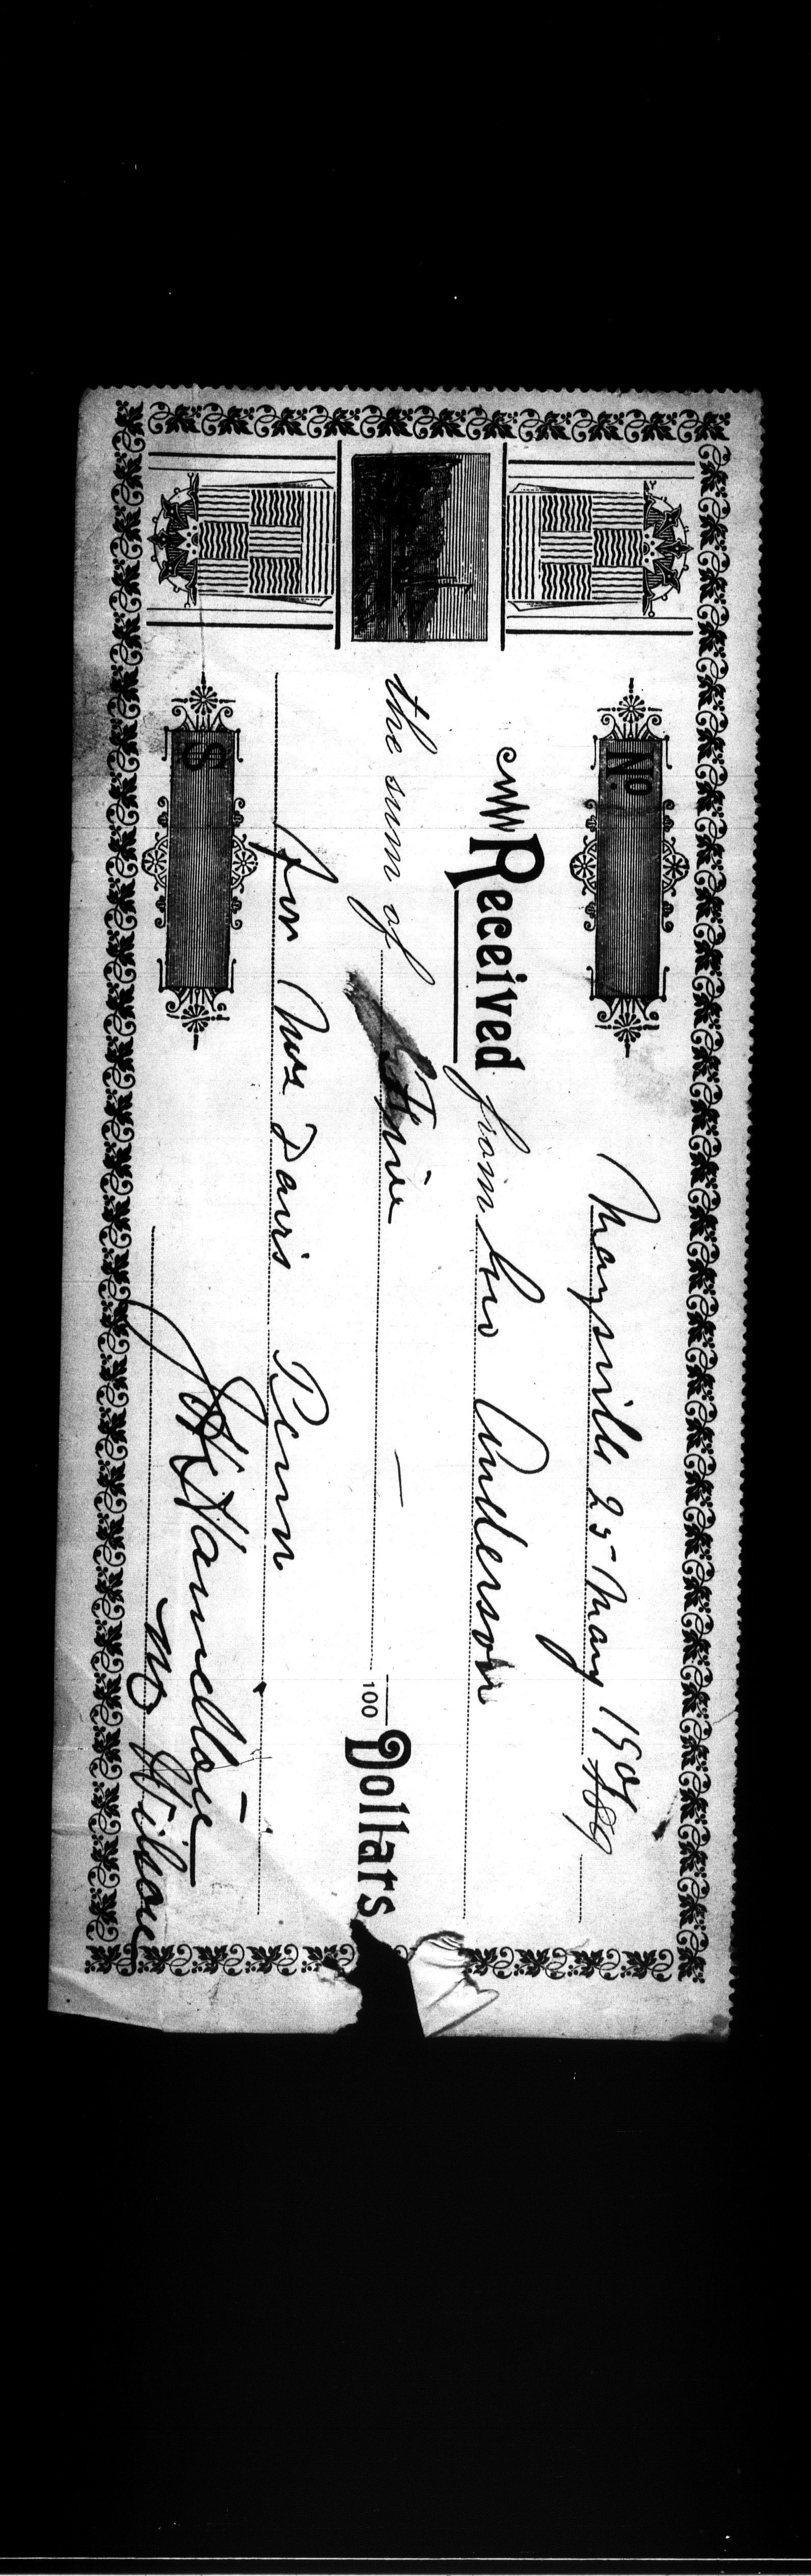 No.
Maysville 25 May 1901 189
Received from Geo Anderson
the sum of Five — 100 Dollars
for Mrs Davis Penn
$ J H Hamilton
no Wilson